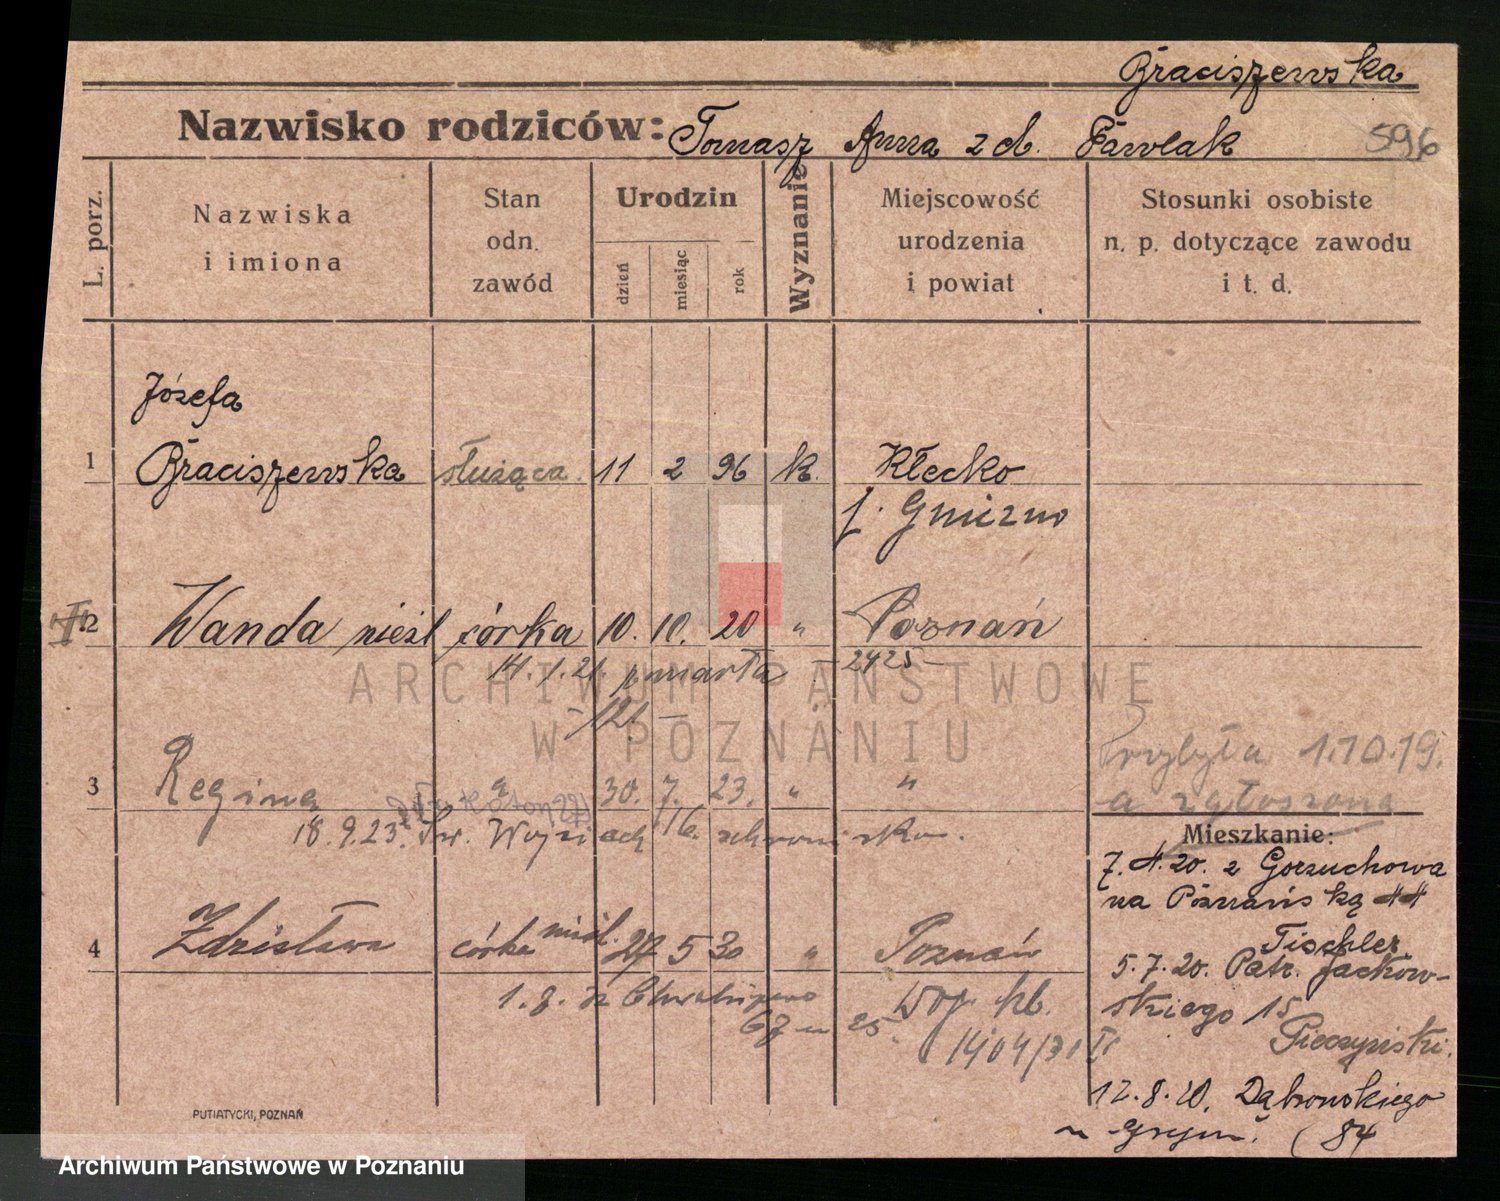 Braciszewska
Nazwisko rodziców: Tomasz Anna z d. Pawlak 596
L. porz.
Nazwiska
i imiona
Stan
odn.
zawód
Urodzin
dzień
miesiąc
rok
Wyznanie
Miejscowość
urodzenia
i powiat
Stosunki osobiste
n. p. dotyczące zawodu
i t. d.
Józefa
1 Braciszewska służąca 11 2 96 k. Kłecko
Gniezno
2 Wanda nieśl córka 10. 10. 20 " Poznań
14.1.21. zmarła 2425
121
3 Regina " 30. 7. 23. " "
18.9.23. Św. Wojciech
4 Zdzisława córka nieśl. 27 5 30 " Poznań
1.8. Chwaliszewo
67 m 25
1404/31 II
Przybyła 1.10.19.
a zgłoszona
Mieszkanie:
7.4.20. z Gorzuchowa
na Poznańską 44
Tischler
5.7.20. Patr. Jackow-
skiego 15
Pieczyński.
12.8.20. Dąbrowskiego
84
PUTIATYCKI, POZNAŃ
ARCHIWUM PAŃSTWOWE
W POZNANIU
Archiwum Państwowe w Poznaniu